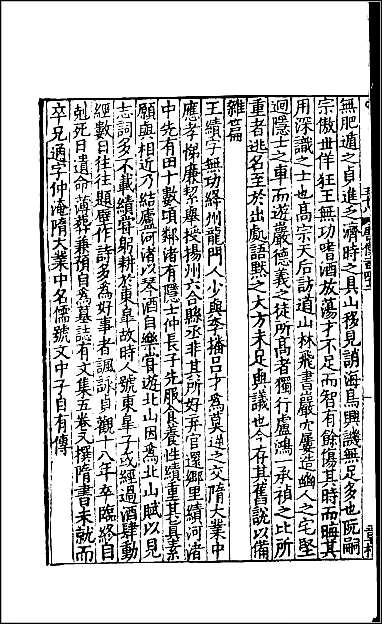 無肥遁之貞進乏濟時之具山移見誚海鳥興譏無足多也阮嗣
宗傲世佯狂王無功嗜酒放蕩才不足而智有餘傷其時而晦其
用深識之士也高宗天后訪道山林飛書巖穴屢造幽人之宅堅
迴隱士之車而遊巖德義之徒所高者獨行盧鴻一承禎之比所
重者逃名至於出處語默之大方未足與議也今存其舊說以備
雜篇
王績字無功絳州龍門人少與李播呂才為莫逆之交隋大業中
應孝悌廉絜舉授揚州六合縣丞非其所好弃官還鄉里績河渚
中先有田十數頃鄰渚有隱士仲長子先服食養性績重其真素
願與相近乃結廬河渚以琴酒自樂甞遊北山因為北山賦以見
志詞多不載績甞躬耕於東皐故時人號東皐子或經過酒肆動
經數日往往題壁作詩多為好事者諷詠貞觀十八年卒臨終自
剋死日遺命薄葬兼預自為墓誌有文集五卷又撰隋書未就而
卒兄通字仲淹隋大業中名儒號文中子自有傳